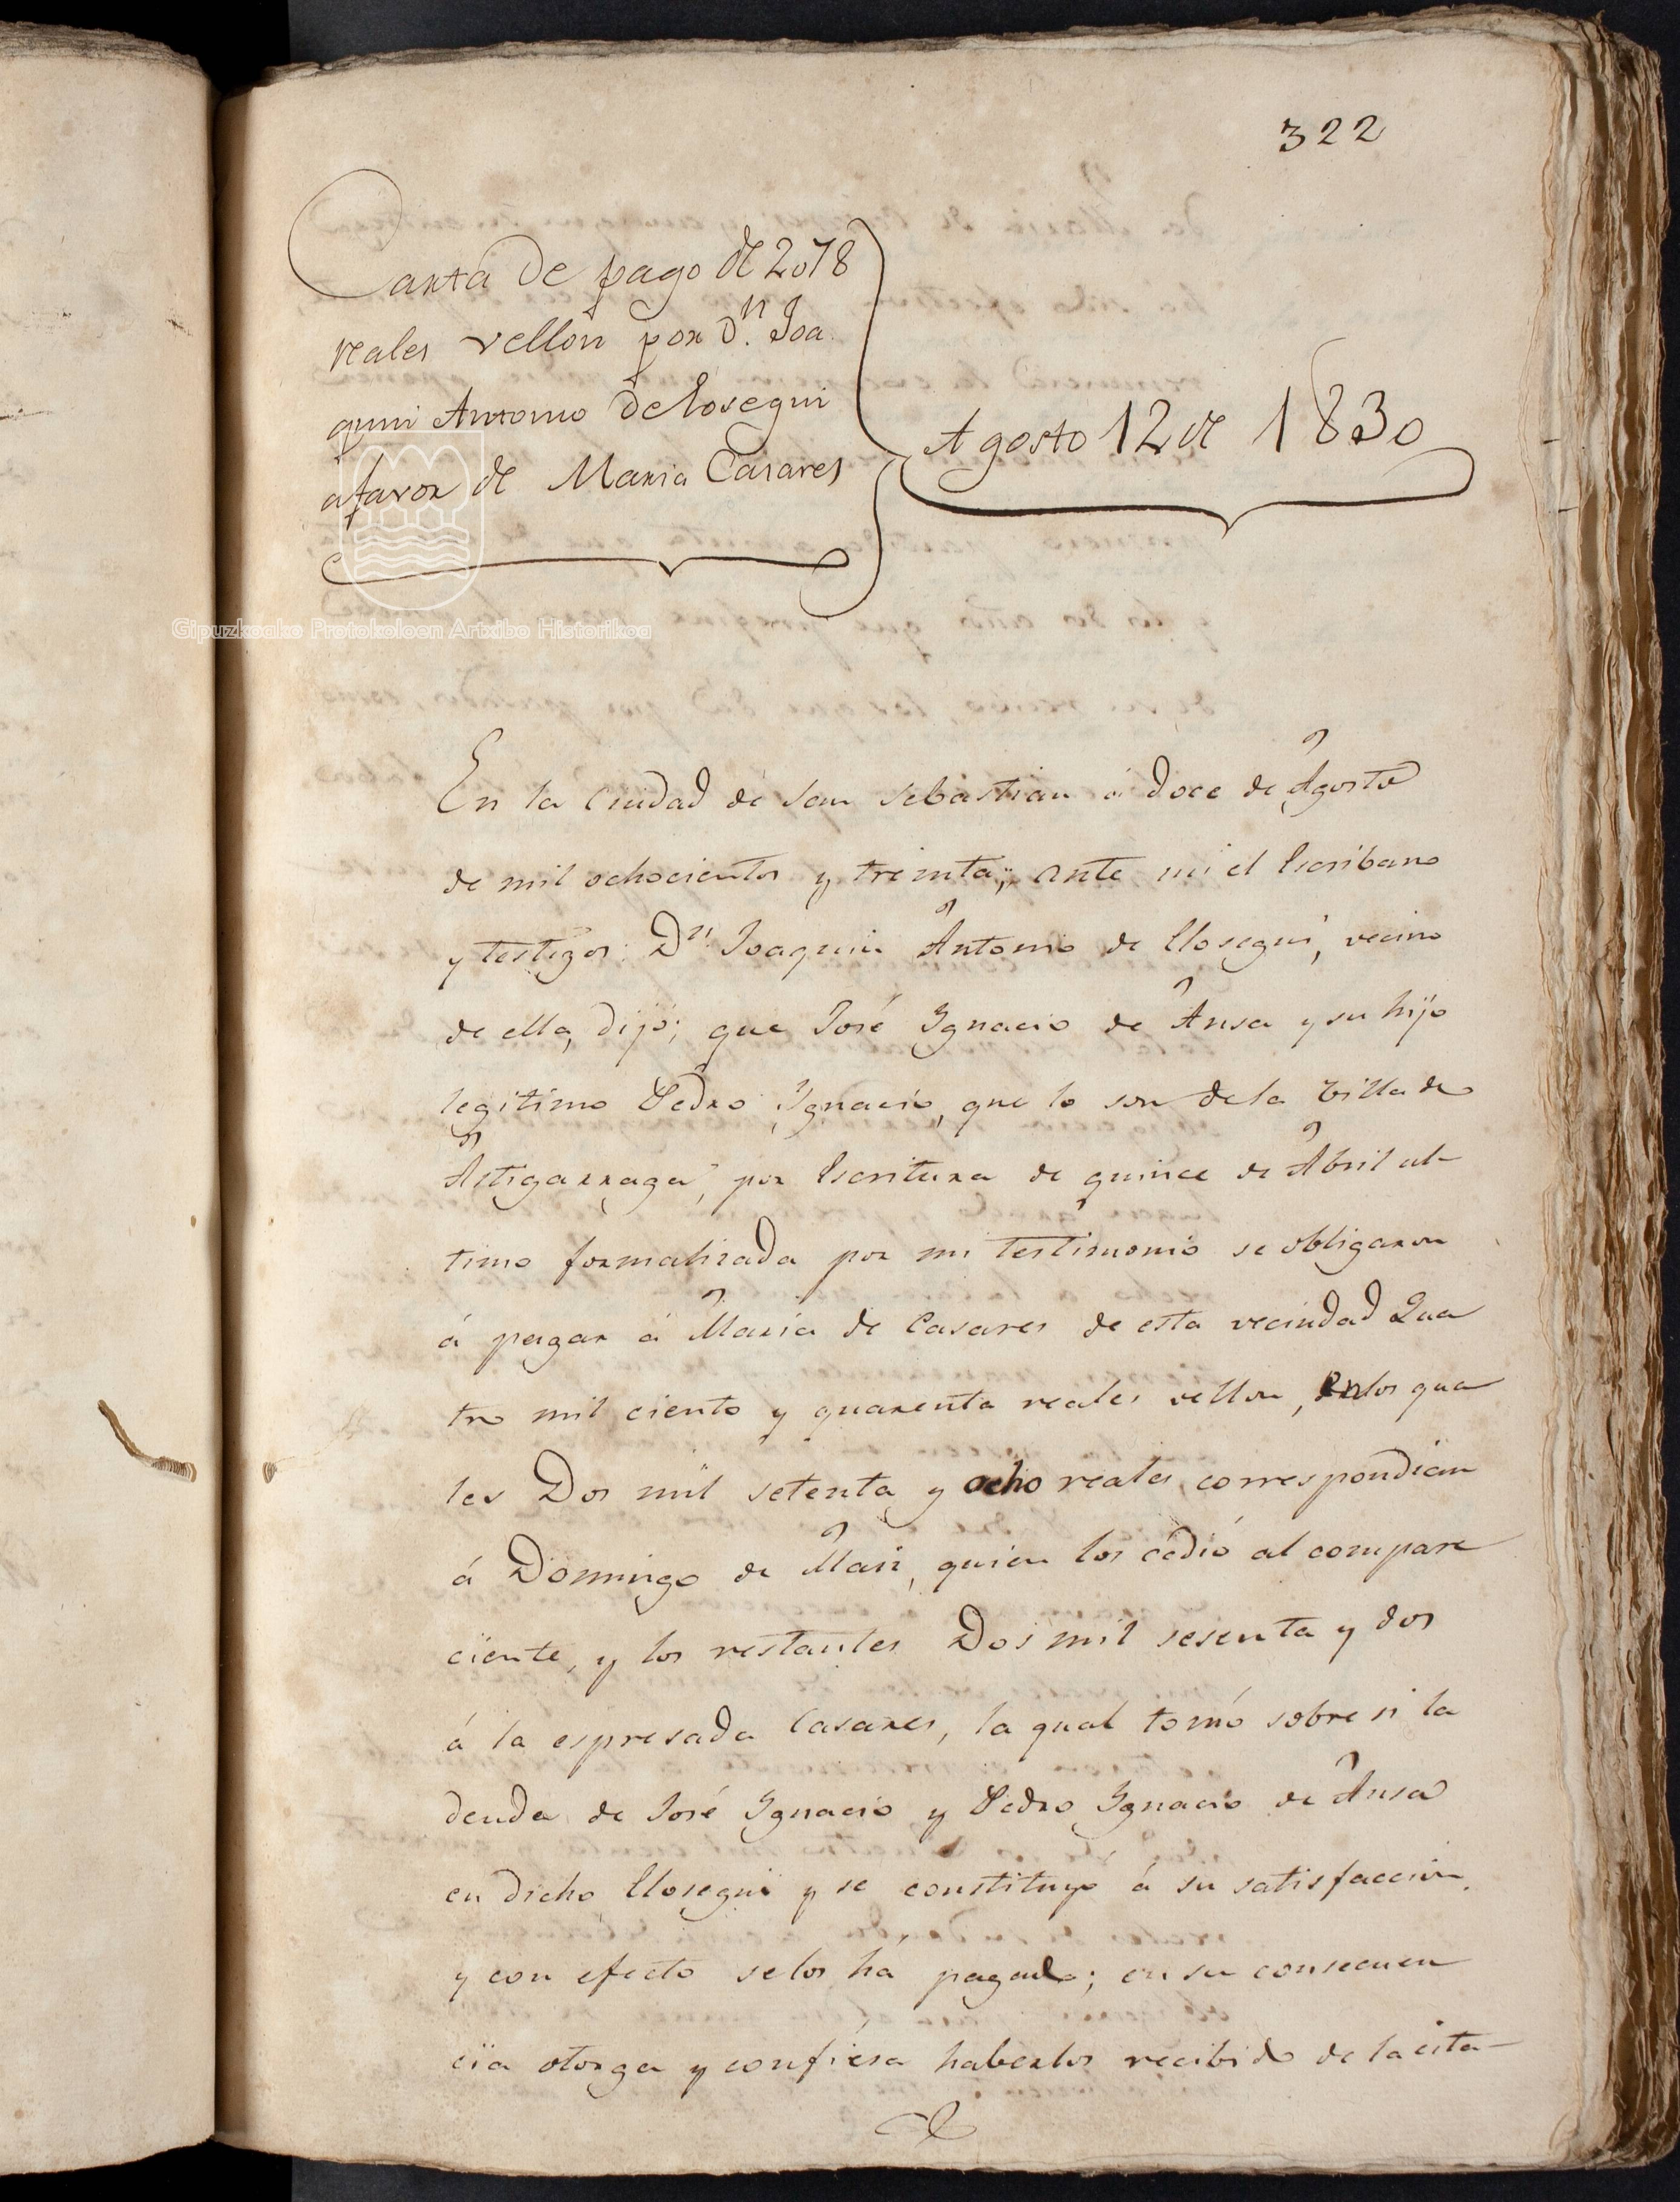 322
Carta de pago de 2078
reales vellon por Dn. Joa
quin Antonio de Elosegui
a favor de Maria Casares
Agosto 12 de 1830
Gipuzkoako Protokoloen Artxibo Historikoa
En la Ciudad de San Sebastian á doce de Agosto
de mil ochocientos y treinta; ante mi el Escribano
y testigos Dn. Joaquin Antonio de Elosegui, vecino
de ella, dijo; que José Ygnacio de Ansa y su hijo
legitimo Pedro Ygnacio, que lo son de la Villa de
Astigarraga, por Escritura de quince de Abril ul-
timo formalizada por mi testimonio se obligaron
á pagar á Maria de Casares de esta vecindad Qua
tro mil ciento y quarenta reales vellon, en los qua
les Dos mil setenta y ocho reales correspondian
á Domingo de, quien los cedió al compare
ciente, y los restantes Dos mil sesenta y dos
á la espresada Casares, la qual tomó sobre si la
deuda de José Ygnacio y Pedro Ygnacio de Ansa
en dicho Elosegui y se constituyó á su satisfaccion,
y con efecto se los há pagado; en su consecuen
cia otorga y confiesa haberlos recibido de la cita-